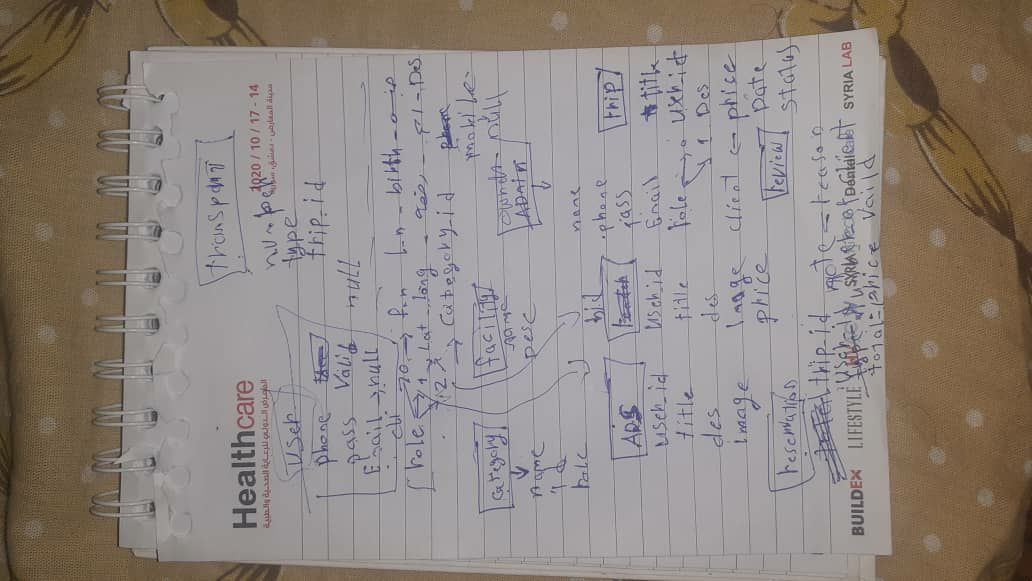 transport
Healthcare
المعرض الدولي للرعاية الصحية والطبية
2020 / 10 / 17 - 14
مدينة المعارض - دمشق، سورية
number
type
trip_id
user
phone
pass Valid
Email → null
null
role
0 → f.n L.n - birth - جنسية
1 → Lat - long - رخصة - اسم - Des
2 → Category_id
phone
mobile
null
Category
name
id
role
facility
name
Desc
owner
ADMIN
name
phone
pass
Email
role → 0
1
ADS
user_id
title
des
image
bid
user_id
title
des
image
price
trip
title
user_id
Des
client ← price
Date
status
review
reservation
trip_id
note - reason
user_id
type number of client
total-price Valid
BUILDEX LIFESTYLE SYRIA Dental SYRIA LAB